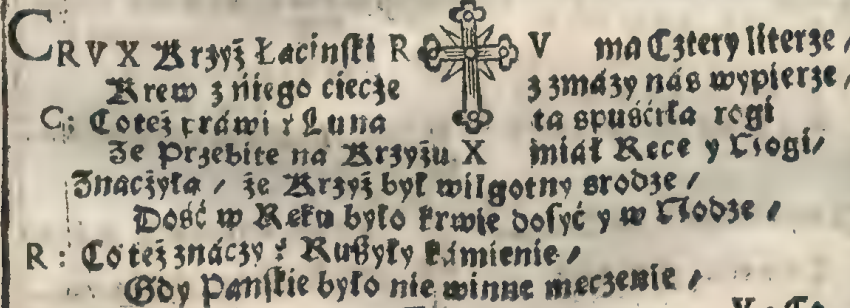 CRVX Krzyż Łaciński R V ma Cztery literze /
Krew z niego ciecże z zmázy nás wypierze /
C: Coteż práwi ? Luna ta spuśćiłá rogi
Że Przebite na Krzyżu X miał Rece y Nogi/
Znacżyła / że Krzyż był wilgotny srodze /
Dość w Reku było krwie dosyć y w Nodze /
R: Co też znáczy ? Rußyły kámienie /
Gdy Pańskie było nie winne meczenie /
V Co